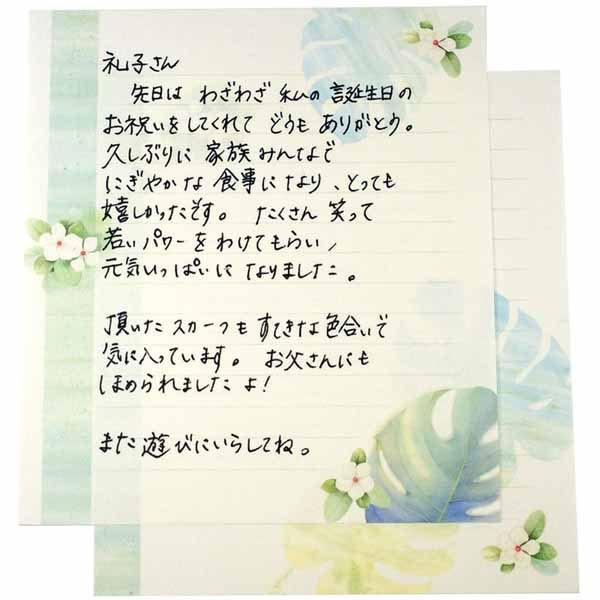 礼子さん
先日は わざわざ 私の 誕生日の
お祝いをしてくれて どうも ありがとう。
久しぶりに 家族 みんなで
にぎやかな 食事に なり、とっても
嬉しかったです。 たくさん 笑って
若いパワーを わけてもらい、
元気いっぱいに なりました。
頂いた スカーフも すてきな 色合いで
気に入っています。 お父さんにも
ほめられましたよ!
また 遊びにいらしてね。